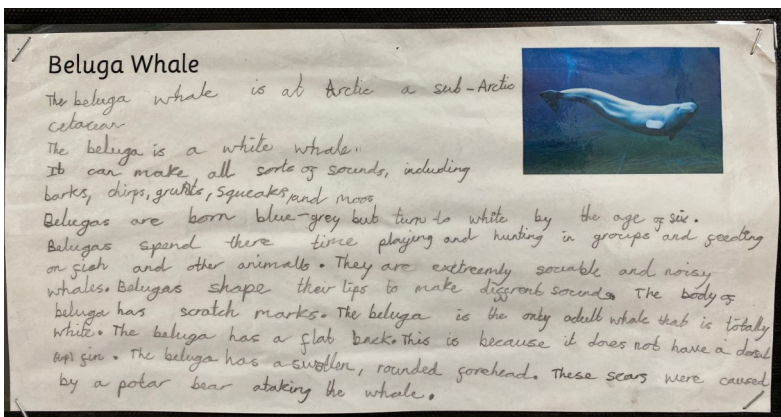 Beluga Whale
The beluga whale is at Arctic a sub-Arctic
cetacean
The beluga is a white whale.
It can make all sorts of sounds, including
barks, chirps, grunts, squeaks, and moos
Belugas are born blue-grey but turn to white by the age of six.
Belugas spend there time playing and hunting in groups and feeding
on fish and other animalls. They are exttreemly sociable and noisy
whales. Belugas shape their lips to make different sounds. The body of
beluga has scratch marks. The beluga is the only adult whale that is totally
white. The beluga has a flat back. This is because it does not have a dorsal
fin. The beluga has a swollen, rounded forehead. These scars were caused
by a polar bear ataking the whale.